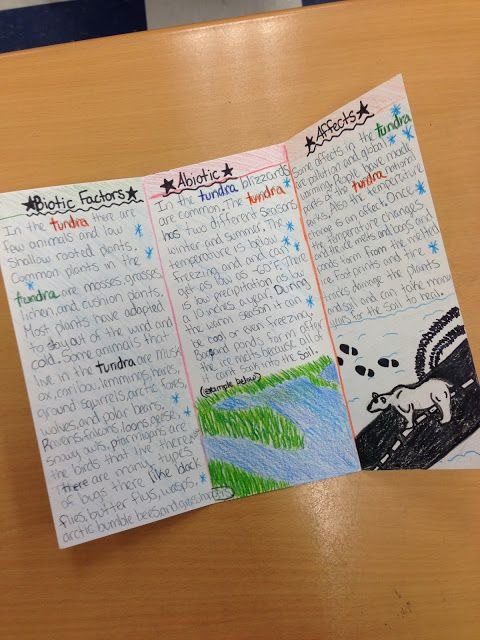 Biotic Factors
In the tundra there are
few animals and low
shallow rooted plants.
Common plants in the
tundra are mosses, grasses,
lichen and cushion plants.
Most plants have adapted
to stay out of the wind and
cold. Some animals that
live in the tundra are musk
ox, caribou, lemmings, hares,
ground squirrels, arctic foxes,
wolves and polar bears.
Ravens, falcons, loons, geese,
snowy owls, ptarmigans are
the birds that live there
there are many types
of bugs there like black
flies, butter flys, wasps,
arctic bumble bees and grasshoppers
Abiotic
In the tundra blizzards
are common. The tundra
has two different seasons
winter and summer. The
temperature is below
freezing and and can
get as low as -60°F. There
is low precipitation as low
a 10 inches a year. During
the warm season it can
be cool or even freezing.
Bogs and ponds form after
the ice melts because all of
cant soak into the soil.
(example below)
Affects
Some effects in the tundra
are pollution and global
warming. People have made
parts of the tundra national
parks. Also the temperature
change is an effect. Once
the temperature changes
and the ice melts and bogs and
ponds form from the melted
ice. Foot prints and tire
tracks damage the plants
and soil and can take many
years for the soil to heal.